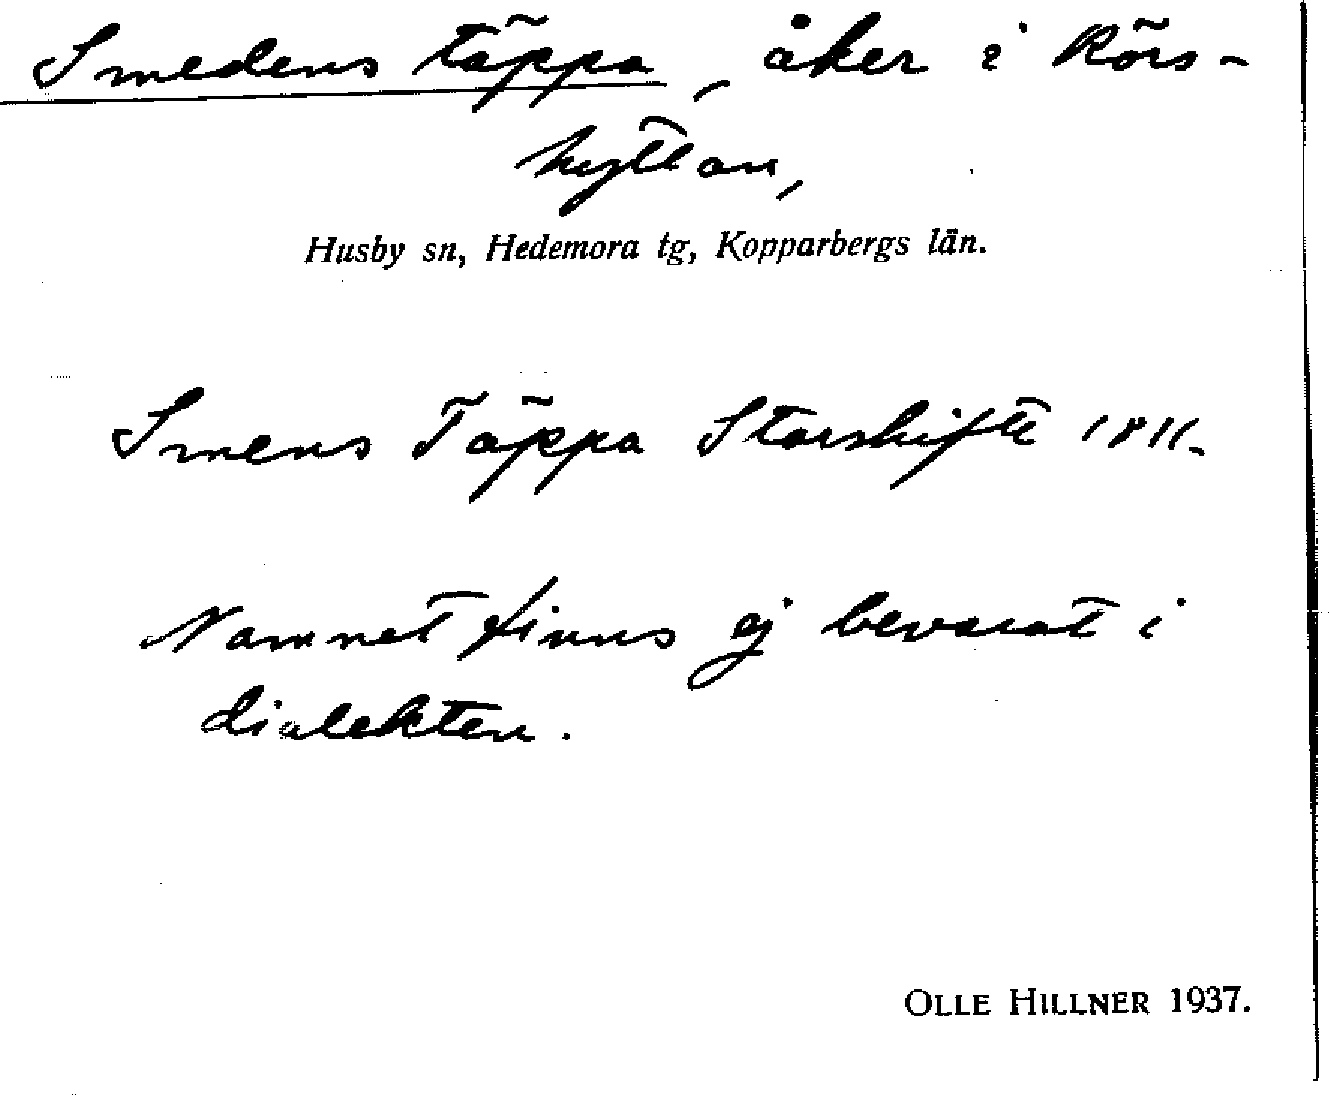 Smedens täppa, åker i Rörs-
hyttan,
Husby sn, Hedemora tg, Kopparbergs län.
Smens Täppa Storskifte 1811.
Namnet finns ej bevarat i
dialekten.
OLLE HILLNER 1937.